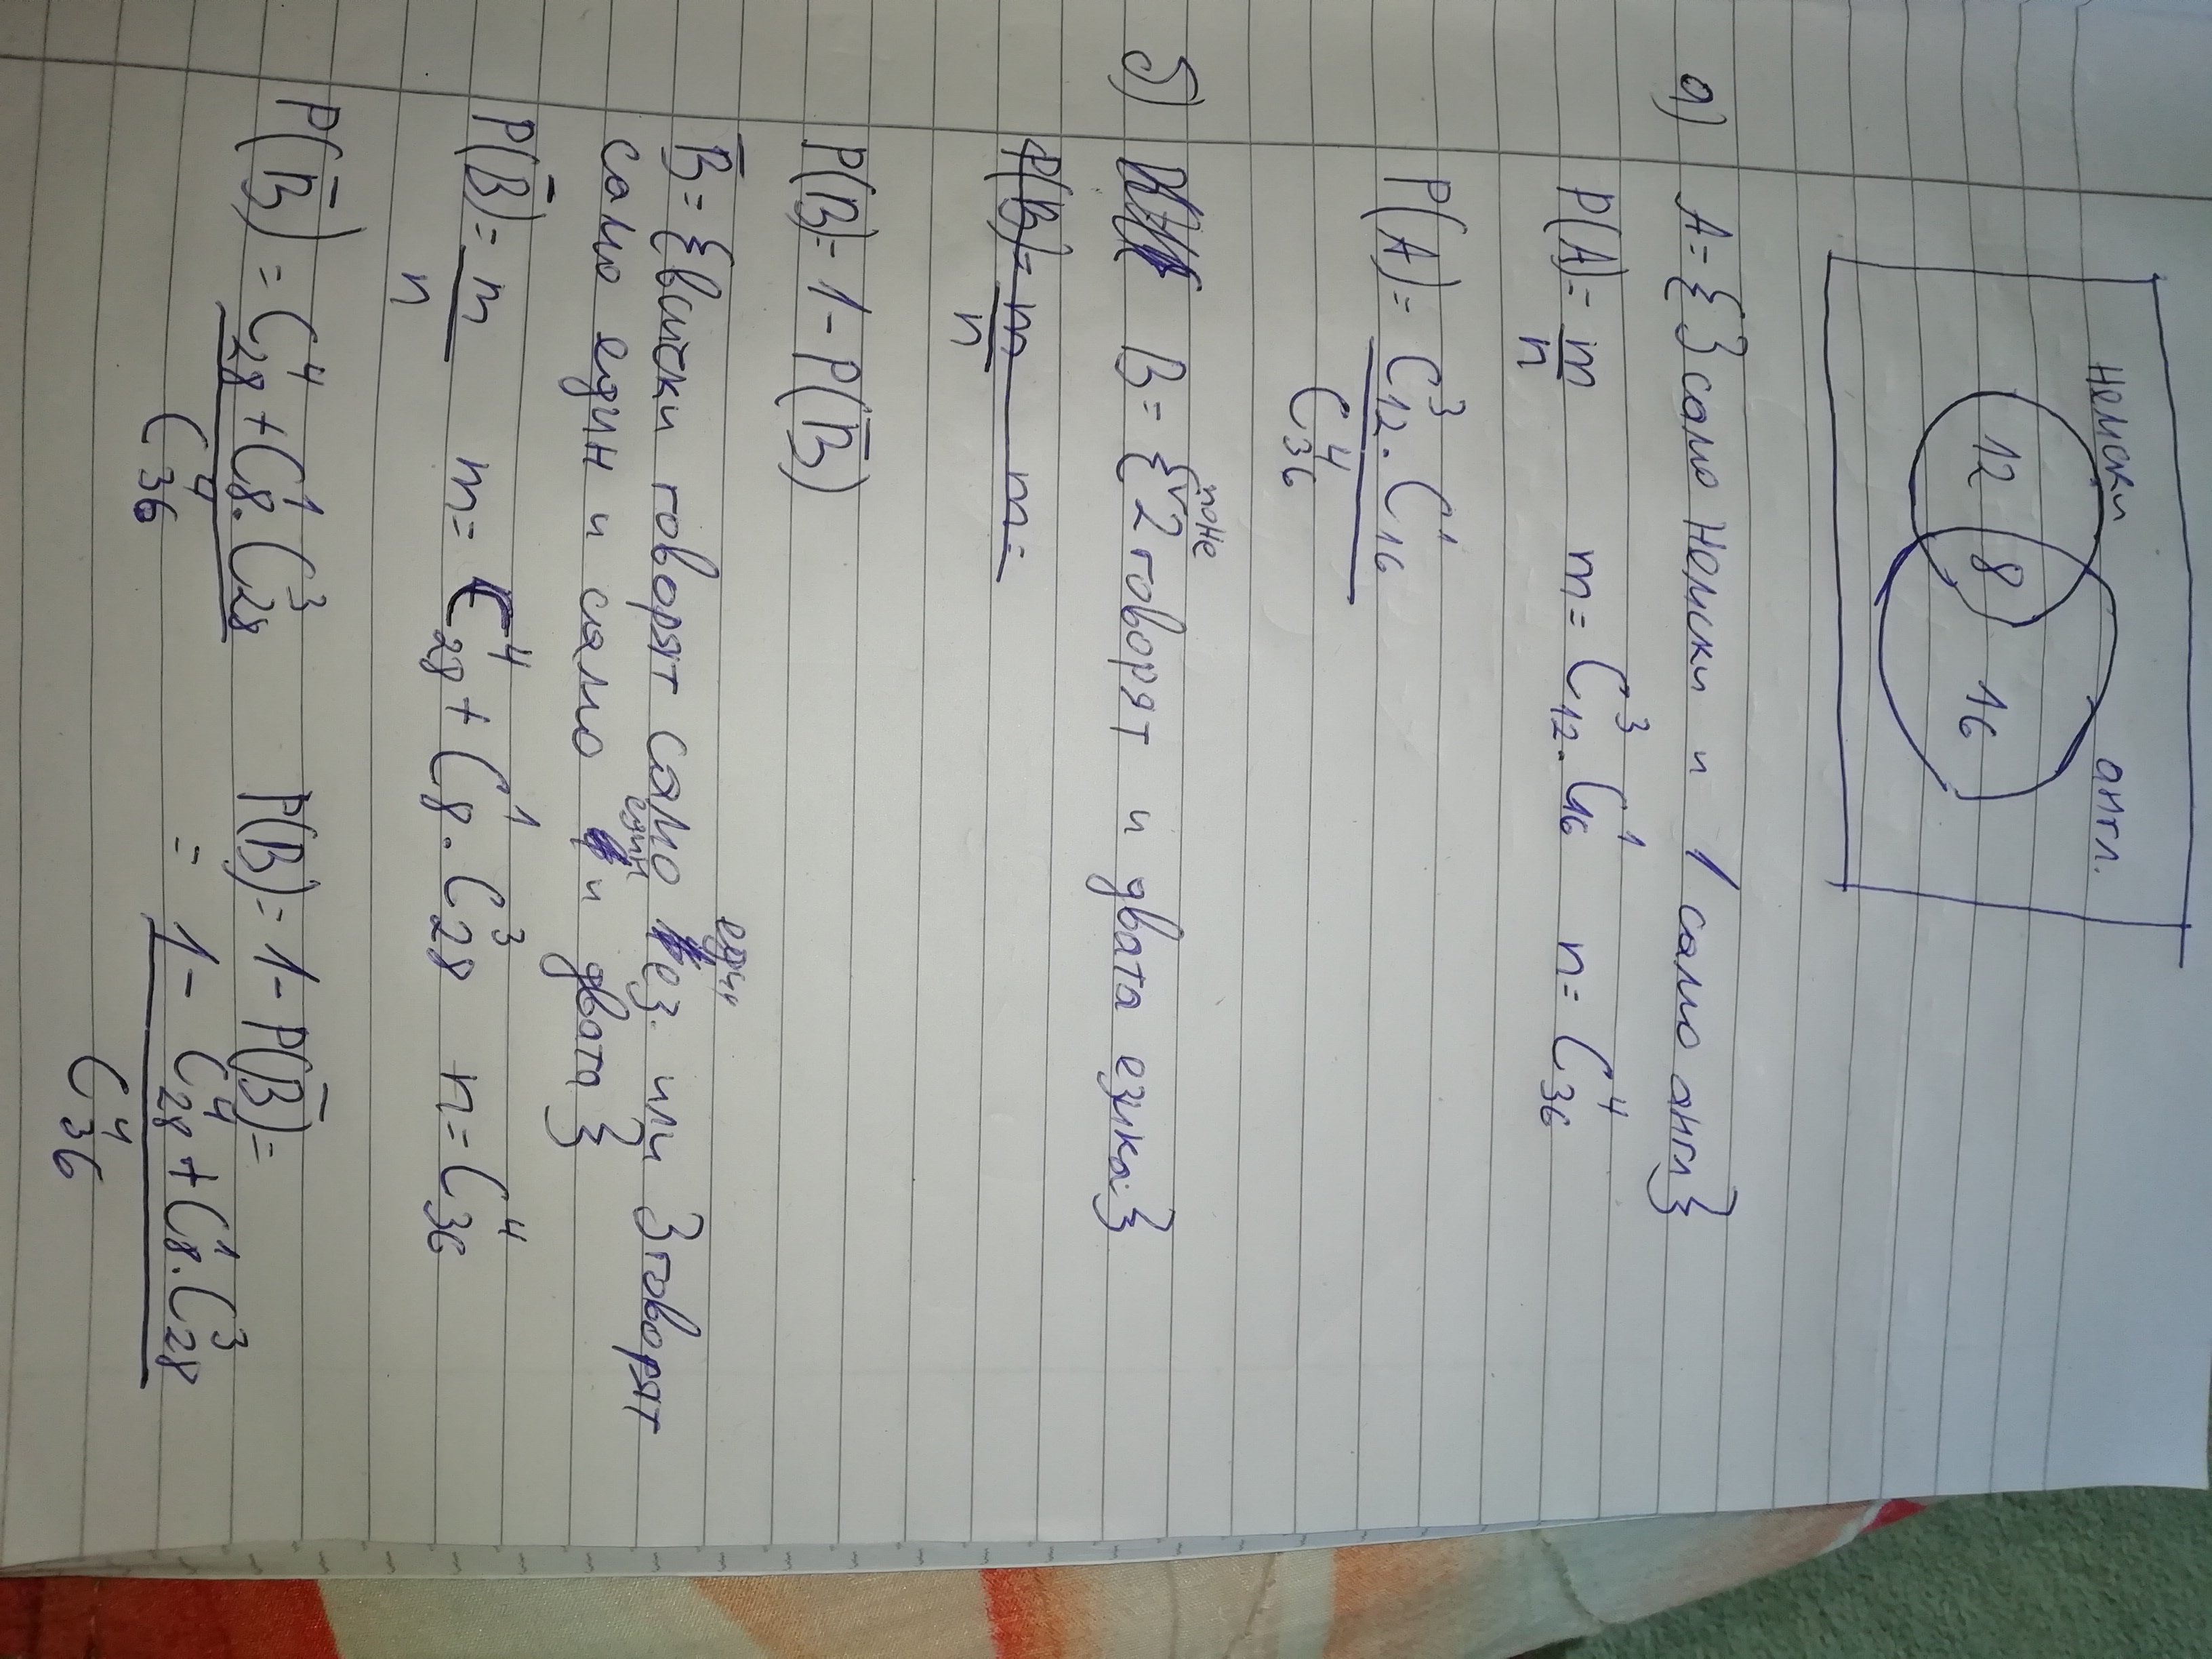 немски англ.
12 8 16
а) A = {3 само немски и 1 само англ}
P(A) = m/n m = C₁₂³ . C₁₆¹ n = C₃₆⁴
P(A) = C₁₂³ . C₁₆¹ / C₃₆⁴
б) B = {поне 2 говорят и двата езика}
P(B) = m/n m =
P(B) = 1 - P(B̄)
B̄ = {Всички говорят само един ез. или 3 говорят
само един и само един и двата}
P(B̄) = m/n m = C₂₈⁴ + C₈¹ . C₂₈³ n = C₃₆⁴
P(B̄) = C₂₈⁴ + C₈¹ . C₂₈³ / C₃₆⁴ P(B) = 1 - P(B̄) =
= 1 - C₂₈⁴ + C₈¹ . C₂₈³ / C₃₆⁴